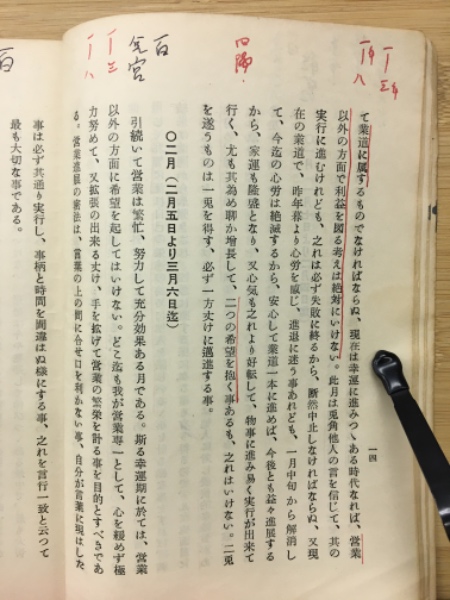 一四
て業道に属するものでなければならぬ、現在は幸運に進みつゝある時代なれば、営業
以外の方面で利益を図る考えは絶対にいけない。此月は兎角他人の言を信じて、其の
実行に進むけれども、之れは必ず失敗に終るから、断然中止しなければならぬ、又現
在の業道で、昨年暮より心労を感じ、進退に迷う事あれども、一月中旬から解消し
て、今迄の心労は絶滅するから、安心して業道一本に進めば、今後とも益々進展する
から、家運も隆盛となり、又心気も之れより好転して、物事に進み易く実行が出来て
行く、尤も其為め聊か増長して、二つの希望を抱く事あるも、之れはいけない。二兎
を逐うものは一兎を得ず、必ず一方丈けに邁進する事。
〇二月（二月五日より三月六日迄）
引続いて営業は繁忙、努力して充分効果ある月である。斯る幸運期に於ては、営業
以外の方面に希望を起してはいけない。どこ迄も我が営業専一として、心を緩めず極
力努めて、又拡張の出来る丈け、手を拡げて営業の繁栄を計る事を目的とすべきであ
る。営業進展の秘法は、言葉の上の間に合せ口を利かない事、自分が言葉に現はした
事は必ず其通り実行し、事柄と時間を間違はぬ様にする事、之れを言行一致と云つて
最も大切な事である。
百